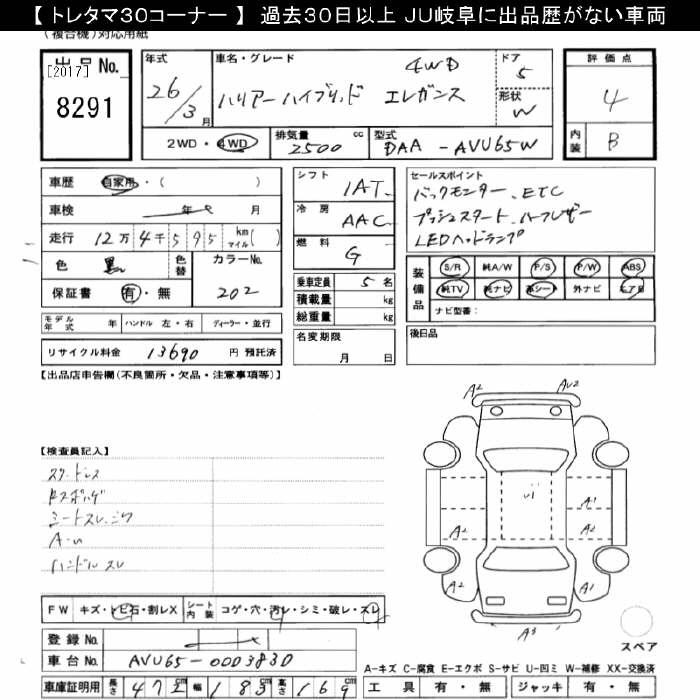 【 トレタマ30コーナー 】 過去30日以上 JU岐阜に出品歴がない車両
(複合機)対応用紙
出品No.
[2017]
8291
年式
26/3月
車名・グレード
4WD
ハリアーハイブリッド エレガンス
ドア
5
形状
W
評価点
4
内装
B
2WD・4WD
排気量
2500
cc
型式
DAA - AVU65W
車歴
自家用・( )
車検
年 月
走行
12万4千595
km
マイル
( )
色
黒
色替
カラーNo.
202
保証書
有・無
シフト
IAT
冷房
AAC
燃料
G
乗車定員 5名
積載量 kg
総重量 kg
名変期限
月 日
セールスポイント
バックモニター、ETC
プッシュスタート、ハーフレザー
LEDヘッドランプ
装備品
S/R 純A/W P/S P/W ABS
純TV 純ナビ 革シート 外ナビ エアB
ナビ型番:
後日品
モデル年式 年 ハンドル 左・右 ディーラー・並行
リサイクル料金 13690 円 預託済
【出品店申告欄(不良箇所・欠品・注意事項等)】
【検査員記入】
スタッドレス
シートスレ、コゲ
A-U
ハンドルスレ
A2
AU2
A1
A2
A2
A2
A1
A3
スペア
FW キズ・トビ石・割レX
シート内装 コゲ・穴・汚レ・シミ・破レ・スレ
登録No.
車台No. AVU65-0003830
車庫証明用 長さ 472cm 幅 183cm 高さ 169cm
A-キズ C-腐食 E-エクボ S-サビ U-凹ミ W-補修 XX-交換済
工具 有・無 ジャッキ 有・無